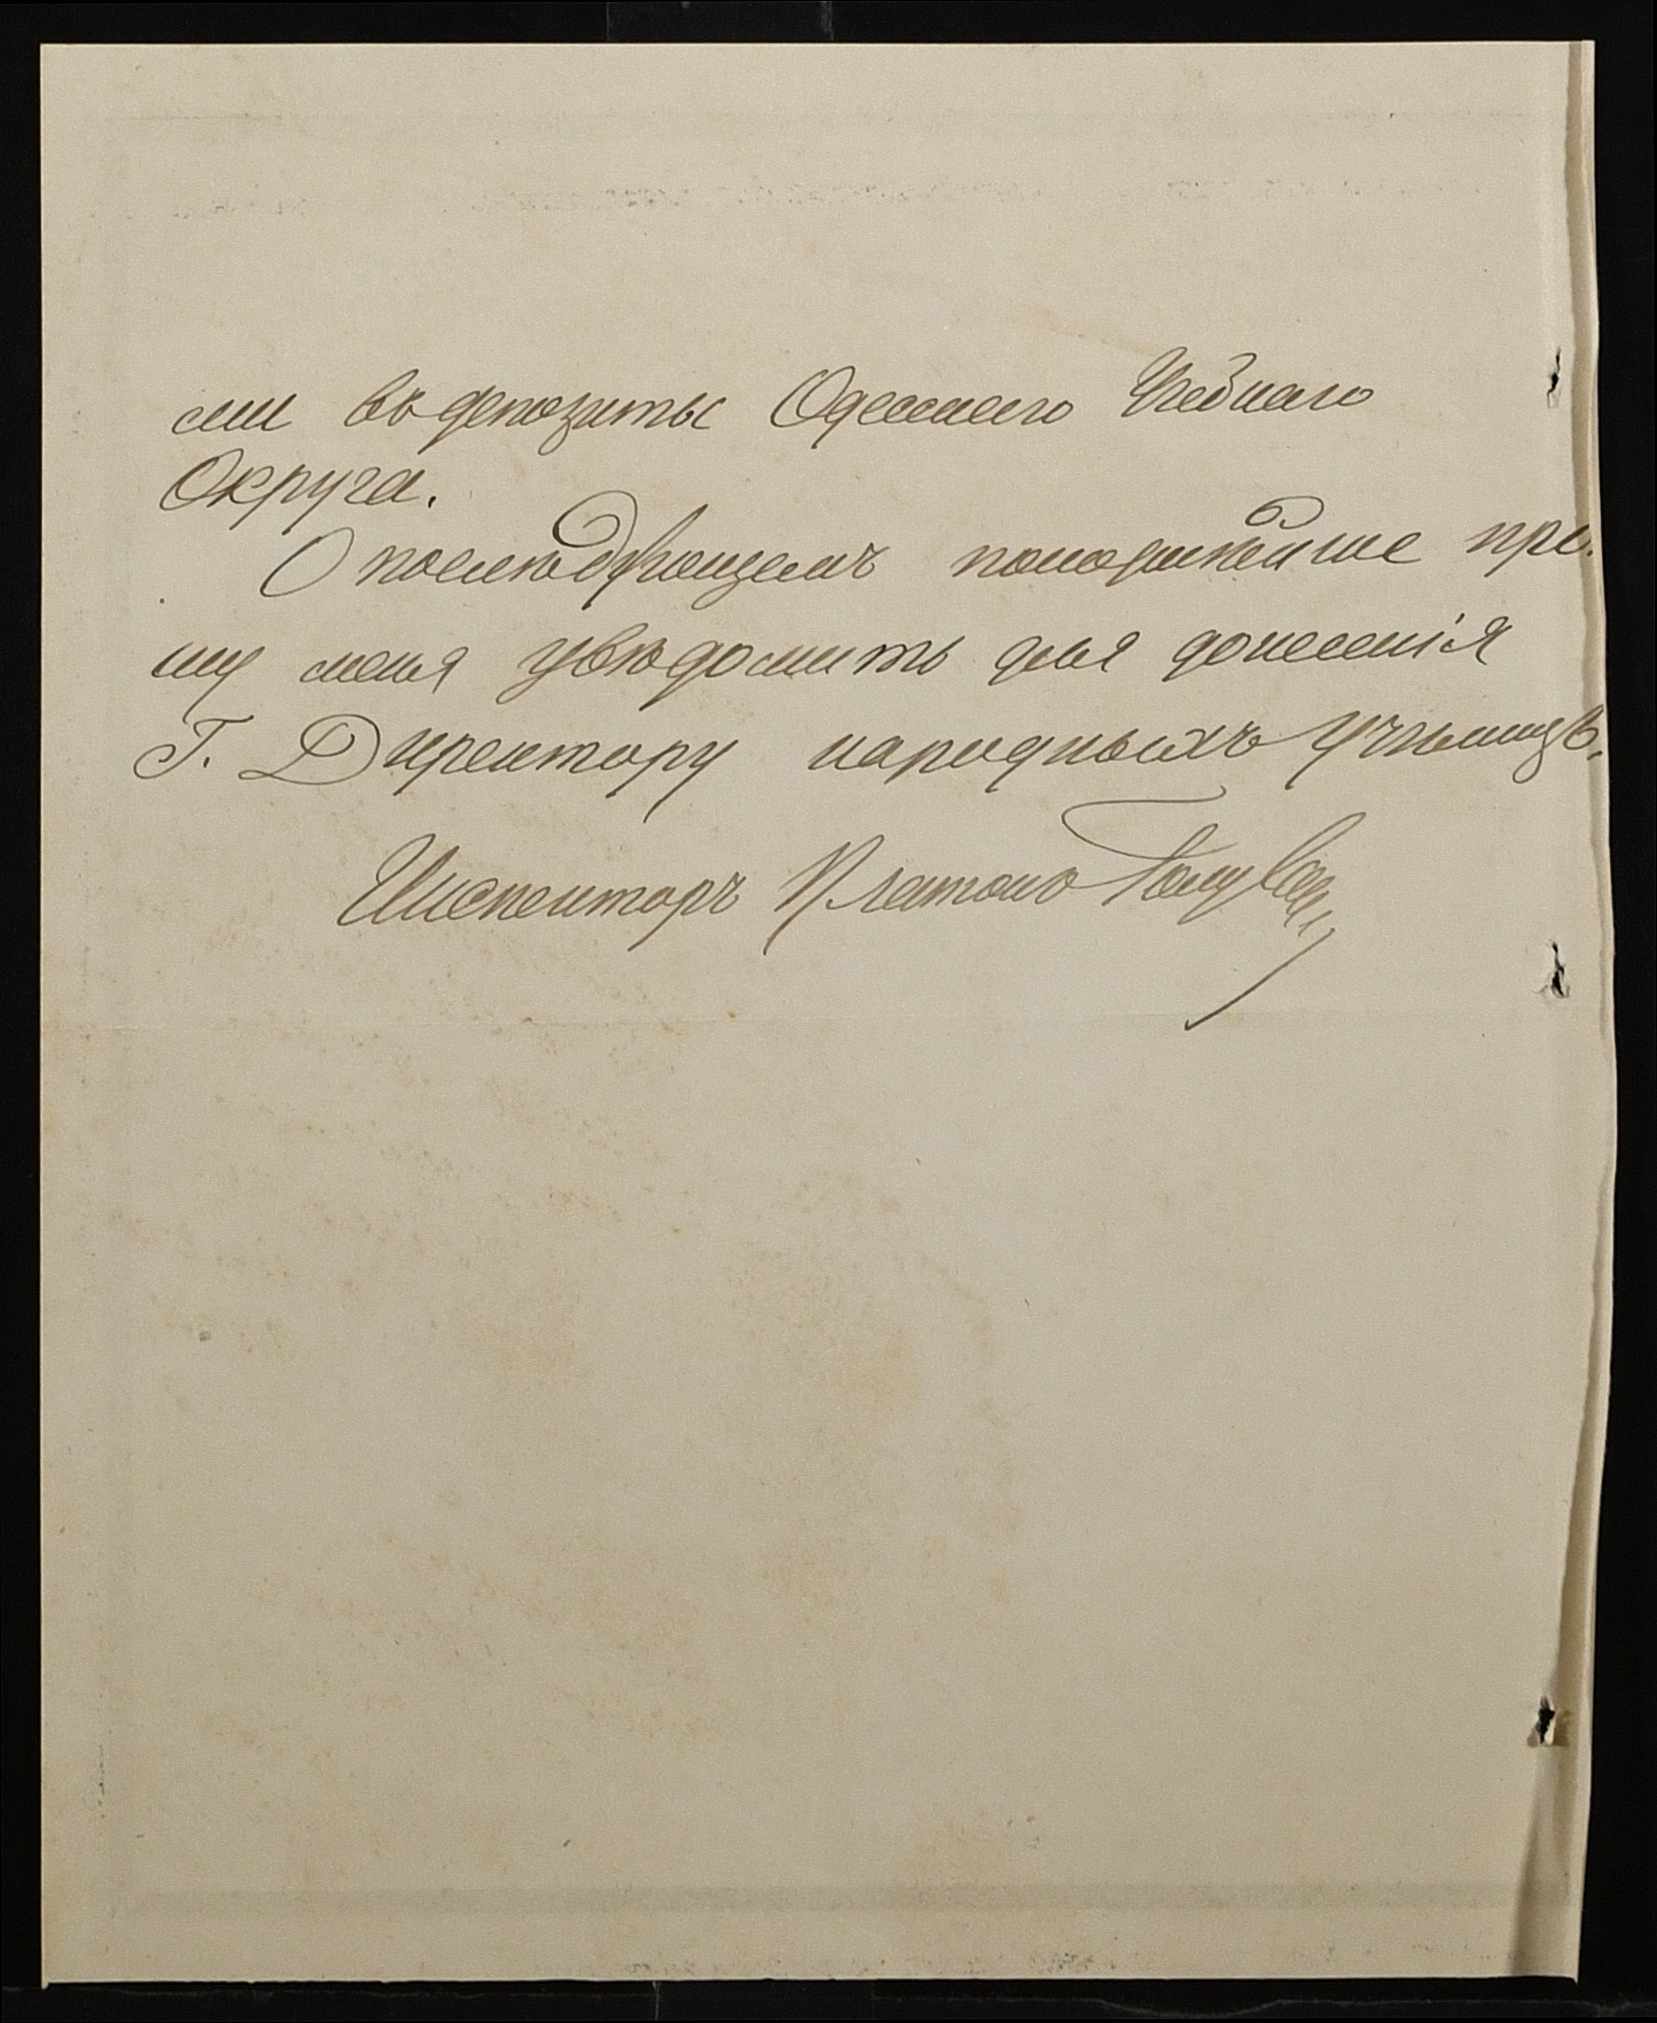 сти въ депозиты Одесскаго Учебнаго
Округа.
О послѣдующемъ покорнѣйше про-
шу меня увѣдомить для донесенія
Г. Директору народныхъ училищъ.
Инспекторъ Платонъ